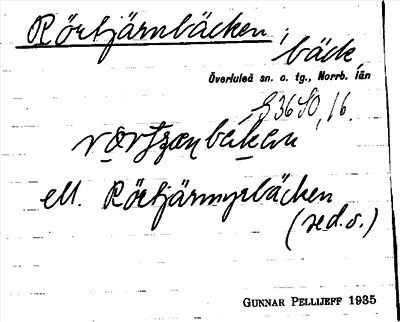 Rörtjärnbäcken,
bäck
Överluleå sn. o. tg., Norrb. län
G3680, 16.
ell. Rörtjärmyrbäcken
(se d. o.)
GUNNAR PELLIJEFF 1935